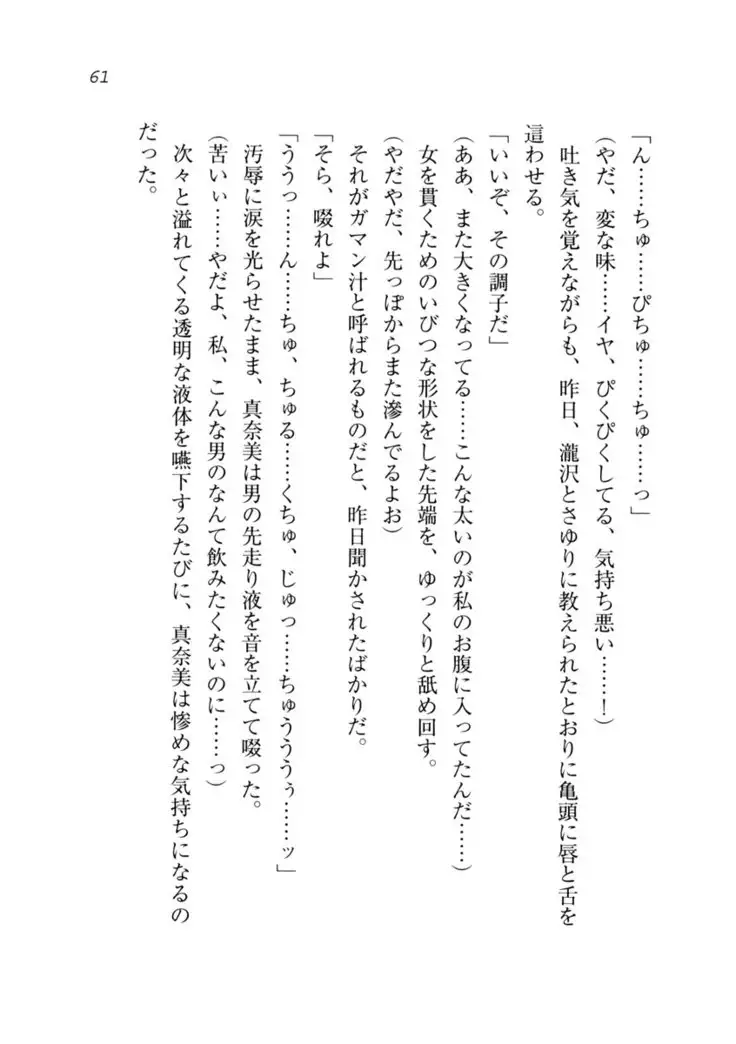 61
「ん……ちゅ……ぴちゅ……ちゅ……っ」
(やだ、変な味……イヤ、ぴくぴくしてる、気持ち悪い……！)
吐き気を覚えながらも、昨日、瀧沢とさゆりに教えられたとおりに亀頭に唇と舌を
這わせる。
「いいぞ、その調子だ」
(ああ、また大きくなってる……こんな太いのが私のお腹に入ってたんだ……)
女を貫くためのいびつな形状をした先端を、ゆっくりと舐め回す。
(やだやだ、先っぽからまた滲んでるよお)
それがガマン汁と呼ばれるものだと、昨日聞かされたばかりだ。
「そら、啜れよ」
「ううっ……ん……ちゅ、ちゅる……くちゅ、じゅっ……ちゅうううぅ……ッ」
汚辱に涙を光らせたまま、真奈美は男の先走り液を音を立てて啜った。
(苦いぃ……やだよ、私、こんな男のなんて飲みたくないのに……っ)
次々と溢れてくる透明な液体を嚥下するたびに、真奈美は惨めな気持ちになるの
だった。